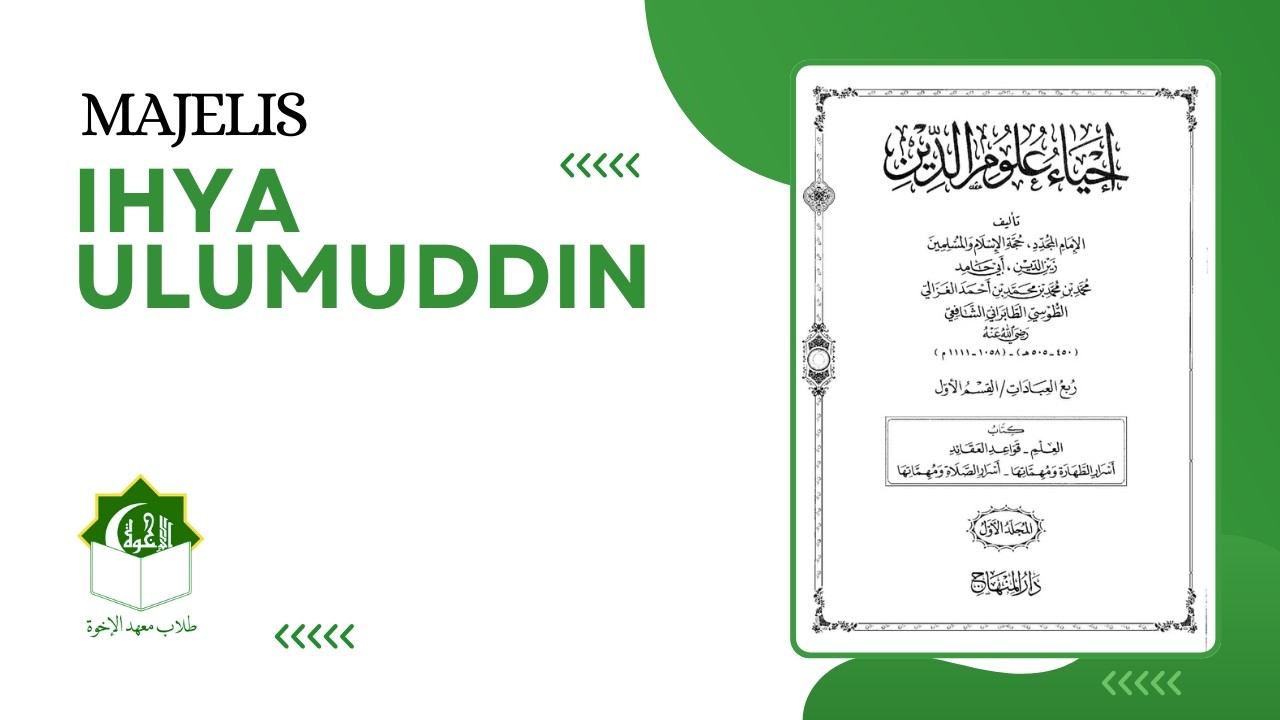 MAJELIS
IHYA
ULUMUDDIN
إحياء علوم الدين
تأليف
الإمام المجدد، حجة الإسلام والمسلمين
زين الدين، أبي حامد
محمد بن محمد بن محمد بن أحمد الغزالي
الطوسي الطابراني الشافعي
رضي الله عنه
(٤٥٠-٥٠٥هـ) - (١٠٥٨-١١١١م)
ربع العبادات / القسم الأول
كتاب
العلم - قواعد العقائد
أسرار الطهارة ومهماتها - أسرار الصلاة ومهماتها
المجلد الأول
دار المنهاج
الإخوة
طلاب معهد الإخوة